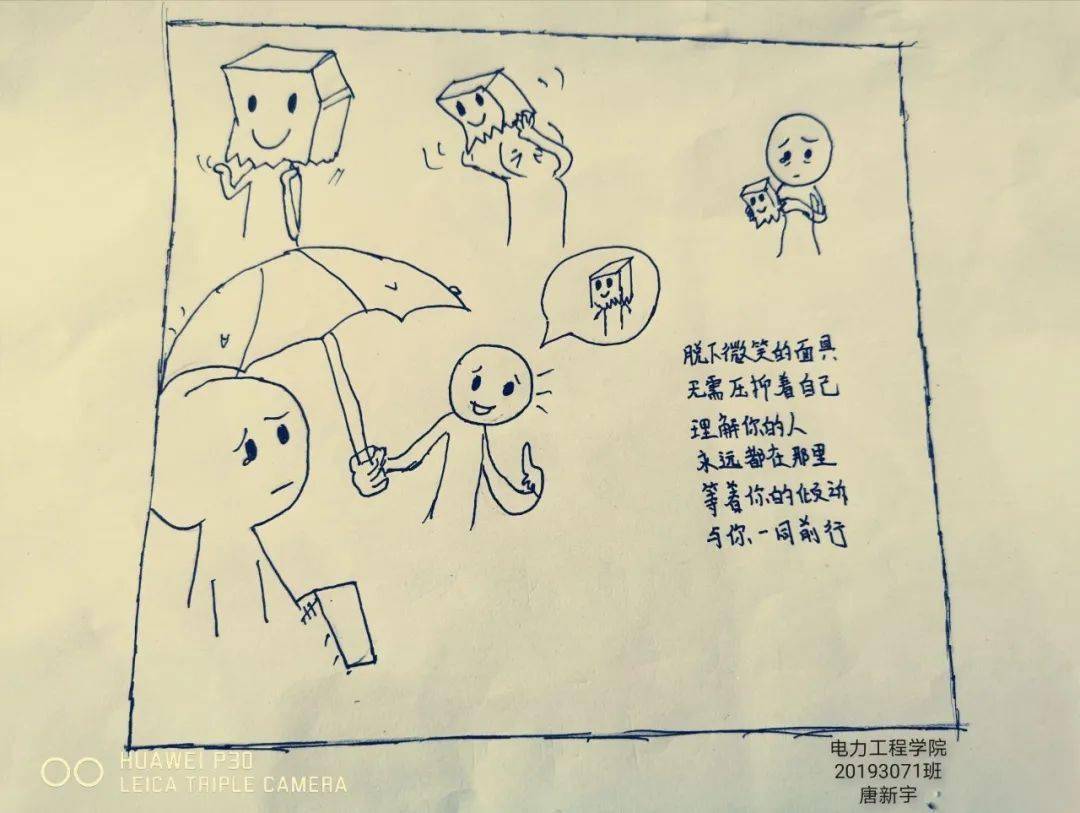 脱下微笑的面具
无需压抑着自己
理解你的人
永远都在那里
等着你的倾诉
与你一同前行
HUAWEI P30
LEICA TRIPLE CAMERA
电力工程学院
20193071班
唐新宇